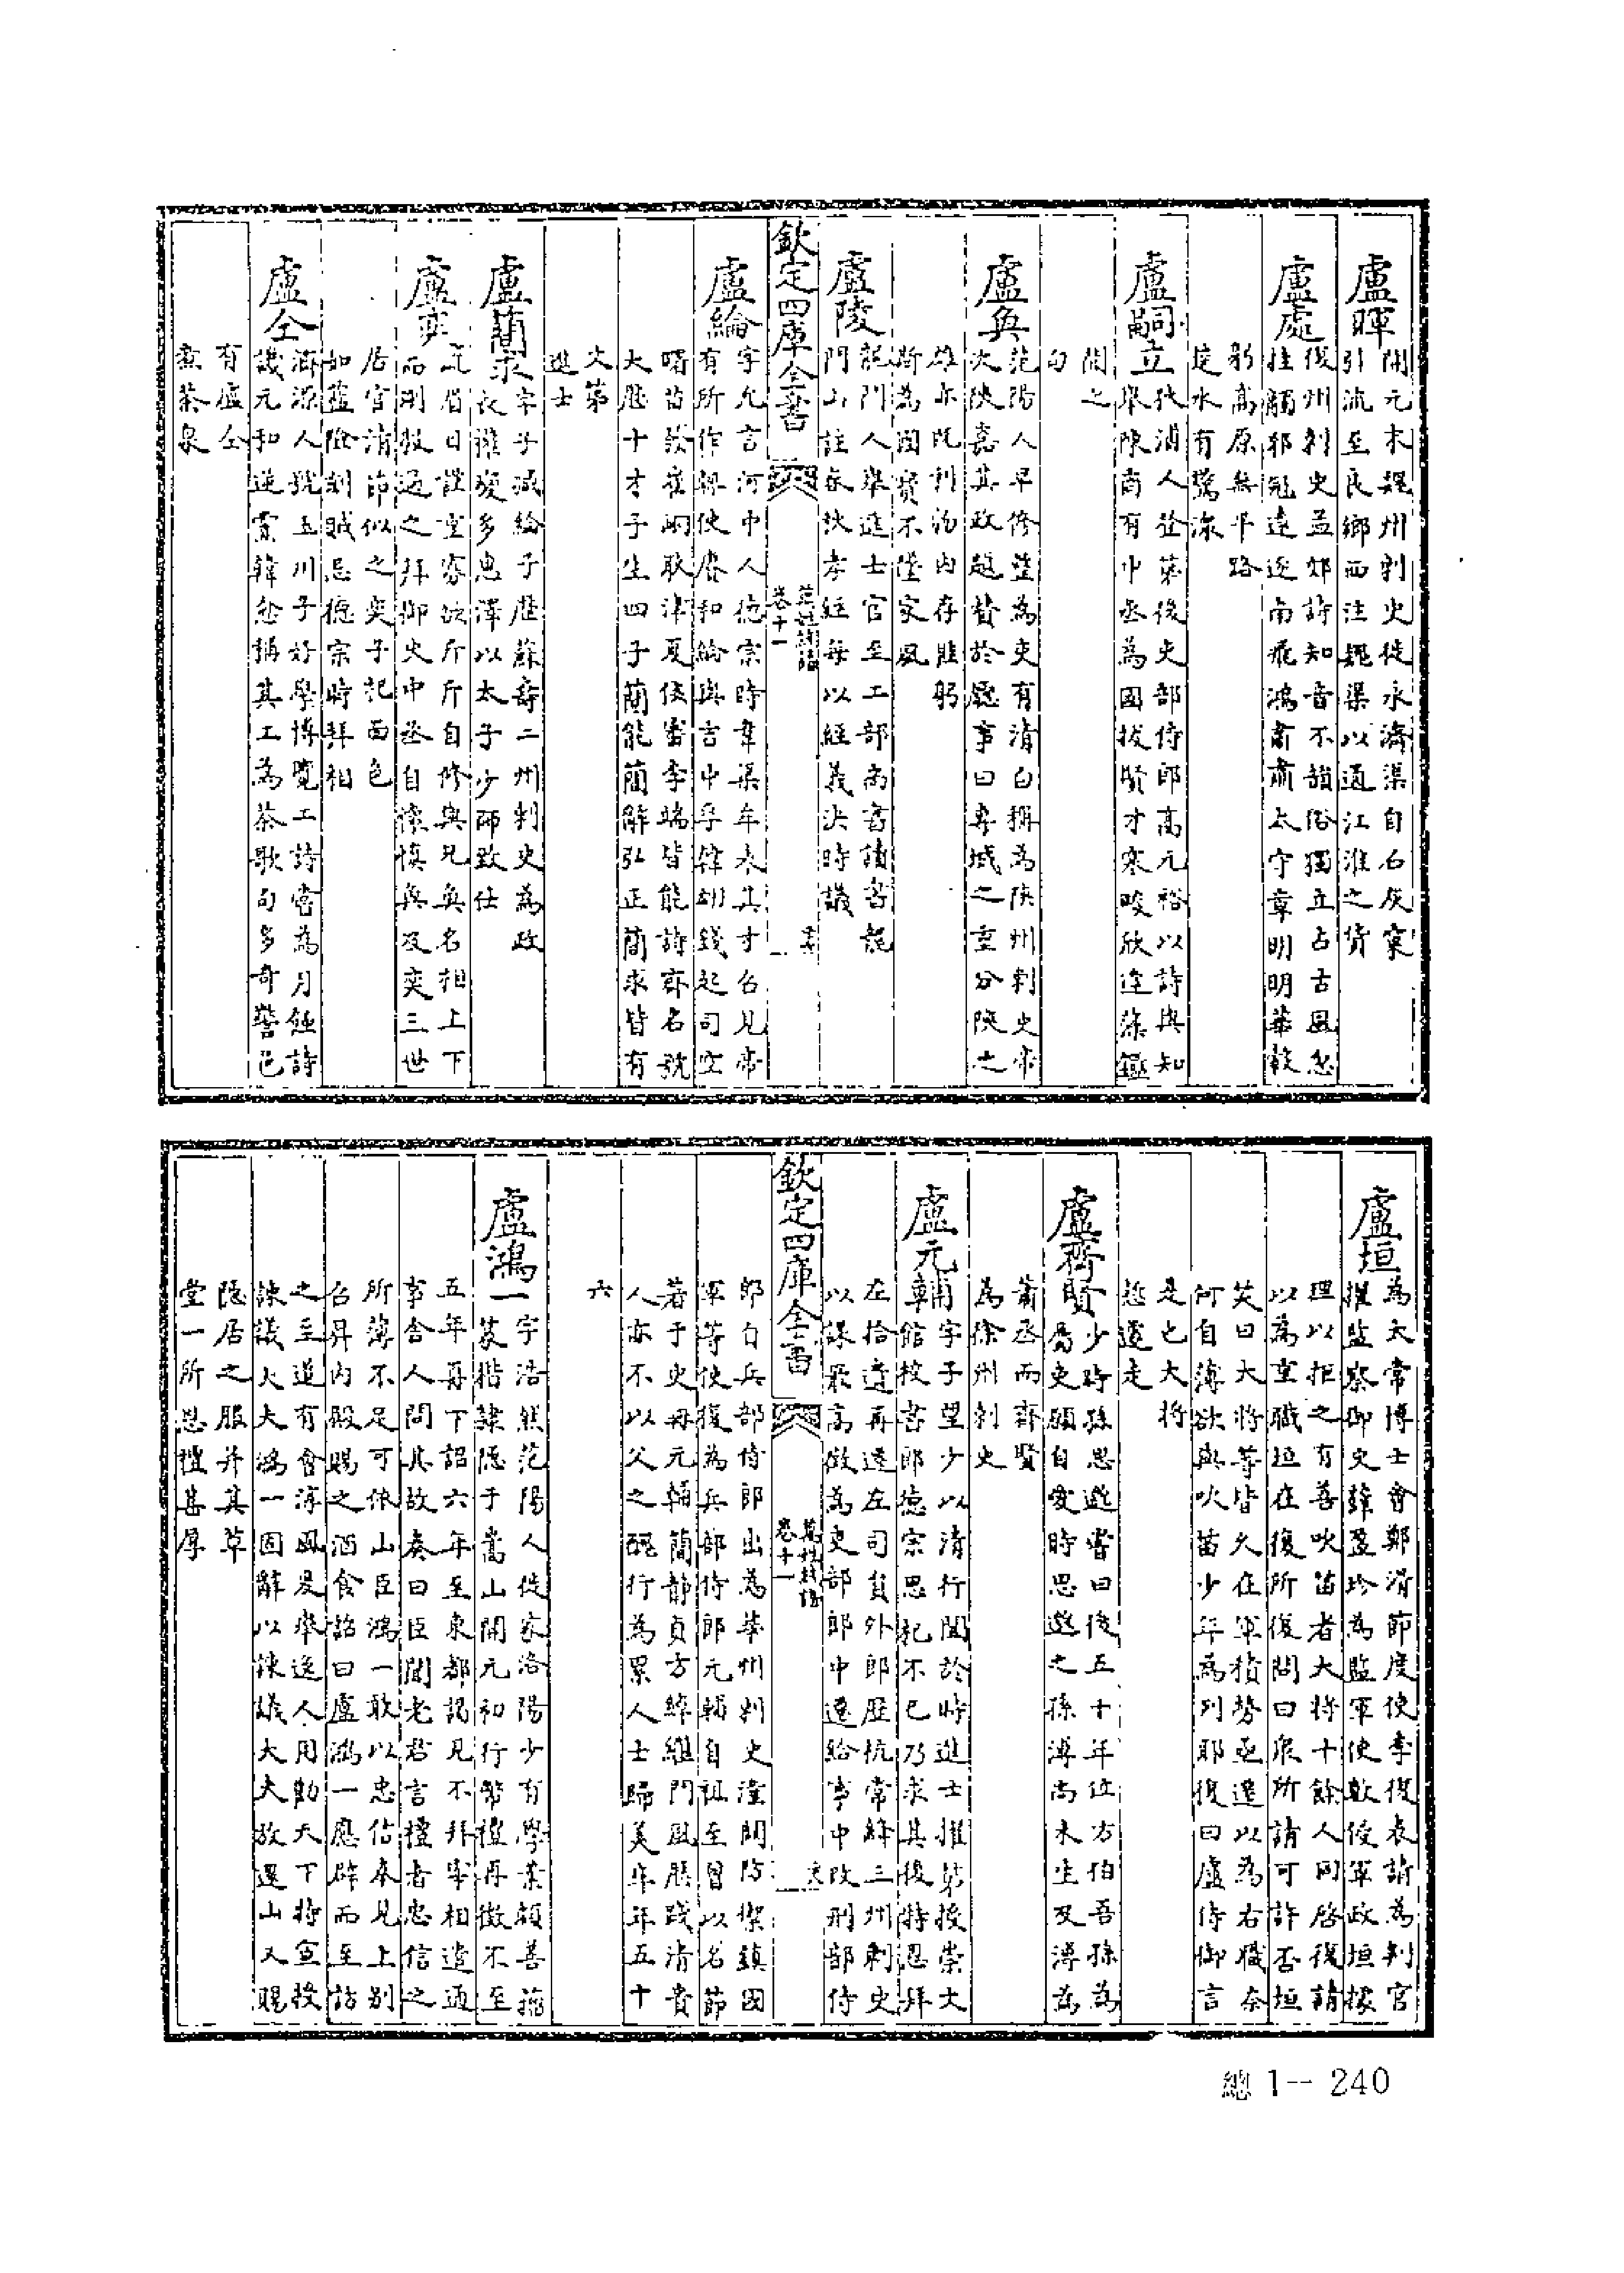 盧暉 開元末魏州刺史徙永濟渠自石灰窠
引流至良鄉西注魏渠以通江淮之貨
盧處 復州刺史孟郊詩知音不韻俗獨立占古風忽
挂觸邪冠遠逐南飛鴻肅肅太守章明明華轂
高原無平路
水有驚湍
盧嗣立 秋浦人登第後吏部侍郎高元裕以詩與知
舉陳商有中丞為國拔賢才寒畯欣逢藻鑑
開之
句
盧奐 范陽人早修整為吏有清白稱為陝州刺史帝
次陝嘉其政題贊於廳事曰專城之重分陝之
雄亦既利物內存匪躬
斯為國寶不墜家風
盧陵 龍門人舉進士官至工部尚書讀書龍
門山註春秋孝經每以經義決時議
欽定四庫全書
萬姓統譜
卷十一
盧綸 字允言河中人德宗時韋渠牟表其才召見帝
有所作輒使賡和綸與吉中孚韓翃錢起司空
曙苗發崔峒耿湋夏侯審李端皆能詩齊名號
大歷十才子生四子簡能簡辭弘正簡求皆有
文第
進士
盧簡求 字子臧綸子歷蘇壽二州刺史為政
長權變多惠澤以太子少師致仕
盧奕 疏眉目謹重寡欲斤斤自修與兄奐名相上下
而剛毅過之拜御史中丞自懷慎奐及奕三世
居官清節似之奕子杞面色
如藍陰剛賊忌德宗時拜相
盧仝 濟源人號玉川子好學博覽工詩嘗為月蝕詩
譏元和逆黨韓愈稱其工為茶歌句多奇警邑
有盧仝
煮茶泉
盧垣 為太常博士會鄭滑節度使李復表請為判官
擢監察御史薛盈珍為監軍使數侵軍政垣據
理以拒之有善吹笛者大將十餘人同啓復請
以為重職垣在復所復問曰衆所請可許否垣
笑曰大將等皆久在軍積勞亟遷以為右職奈
何自薄欲與吹笛少年為列耶復曰盧侍御言
是也大將
慙遽走
盧齊賢 少時孫思邈嘗曰後五十年位方伯吾孫為
屬吏願自愛時思邈之孫溥尚未生及溥為
蕭丞而齊賢
為徐州刺史
盧元輔 字子望少以清行聞於時進士擢第授崇大
館校書郎德宗思杞不已乃求其後特恩拜
左拾遺再遷左司員外郎歷杭常絳三州刺史
以課最高徵為吏部郎中遷給事中改刑部侍
欽定四庫全書
萬姓統譜
卷十一
郎自兵部侍郎出為華州刺史潼關防禦鎮國
軍等使復為兵部侍郎元輔自祖至曾以名節
著于史冊元輔簡靜貞方綽繼門風歷踐清貴
人亦不以父之醜行為累人士歸美年年五十
六
盧鴻一 字浩然范陽人徙家洛陽少有學業頗善籀
篆楷隸隱于嵩山開元初行幣禮再徵不至
五年再下詔六年至東都謁見不拜宰相遣通
事舍人問其故奏曰臣聞老君言禮者忠信之
所薄不足可依山臣鴻一敢以忠信奉見上別
召昇內殿賜之酒食詔曰盧鴻一應辟而至訪
之至道有會淳風爰舉逸人用勸天下特宜授
諫議大夫鴻一固辭以諫議大夫放還山又賜
隱居之服并其草
堂一所恩禮甚厚
總 1-- 240